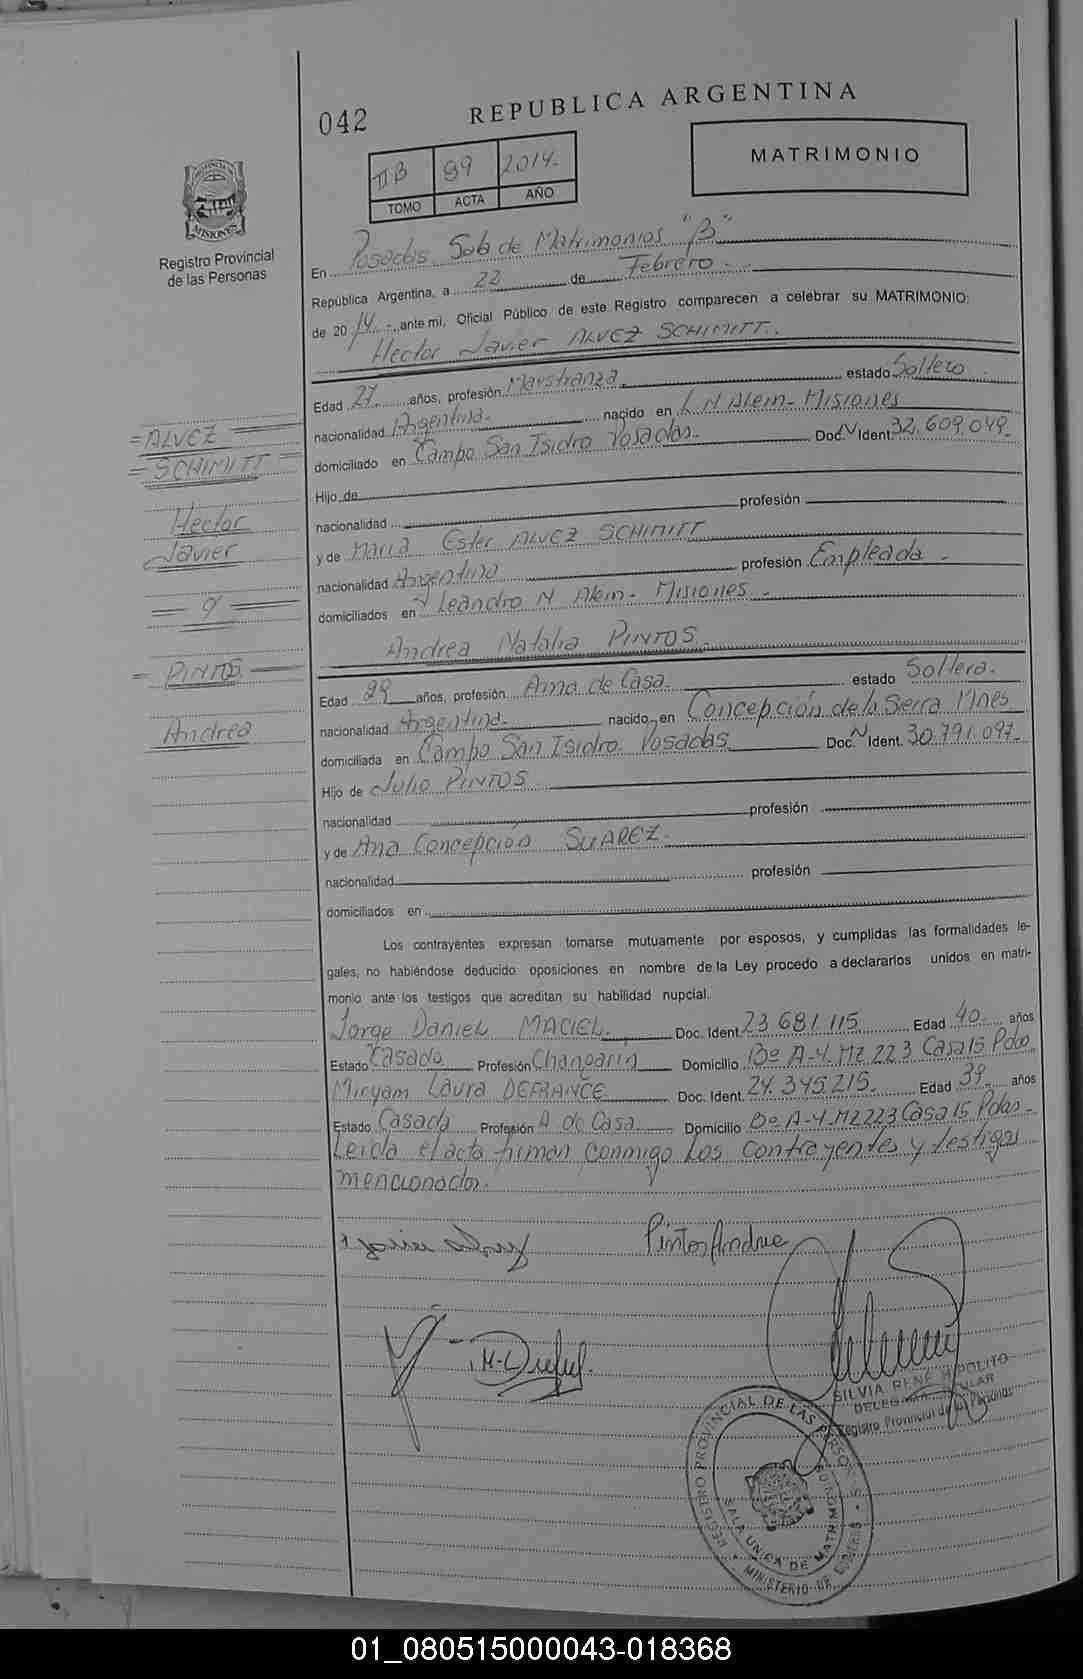 042
REPUBLICA ARGENTINA
II B 89 2014.
TOMO ACTA AÑO
MATRIMONIO
Registro Provincial
de las Personas
En Posadas Sala de Matrimonios "B"
República Argentina, a 22 de Febrero
de 2014 ante mi, Oficial Público de este Registro comparecen a celebrar su MATRIMONIO:
Hector Javier ALVEZ SCHIMITT.
Edad 27 años, profesión Maestranza estado Soltero
nacionalidad Argentina nacido en L N Alem - Misiones
domiciliado en Campo San Isidro Posadas. Doc. N Ident. 32.609.049.
Hijo de
nacionalidad profesión
y de Maria Ester ALVEZ SCHIMITT
nacionalidad Argentina profesión Empleada
domiciliados en Leandro N Alem - Misiones
Andrea Natalia PINTOS
Edad 29 años, profesión Ama de Casa estado Soltera.
nacionalidad Argentina nacido en Concepción de la Sierra Mnes
domiciliada en Campo San Isidro. Posadas Doc. N Ident. 30.791.097.
Hijo de Julio PINTOS
nacionalidad profesión
y de Ana Concepción SUAREZ.
nacionalidad profesión
domiciliados en
=ALVEZ=
=SCHIMITT=
Hector
Javier
= y =
= PINTOS =
Andrea
Los contrayentes expresan tomarse mutuamente por esposos, y cumplidas las formalidades le-
gales, no habiéndose deducido oposiciones en nombre de la Ley procedo a declararlos unidos en matri-
monio ante los testigos que acreditan su habilidad nupcial.
Jorge Daniel MACIEL. Doc. Ident. 23 681.115 Edad 40. años
Estado Casado Profesión Changarin Domicilio Bº A-4. MZ 223 Casa 15 Pdas
Miryam Laura DEFRANCE Doc. Ident. 24.345.215. Edad 39 años
Estado Casada Profesión A de Casa Domicilio Bº A-4. MZ 223 Casa 15 Pdas.
Leida el acta firman conmigo los contrayentes y testigos
mencionados.
Pintos Andrea
SILVIA RENÉ HIPOLITO
DELEGADA TITULAR
Registro Provincial de las Personas
REGISTRO PROVINCIAL DE LAS PERSONAS
SALA UNICA DE MATRIMONIOS
MINISTERIO DE GOBIERNO
01_080515000043-018368